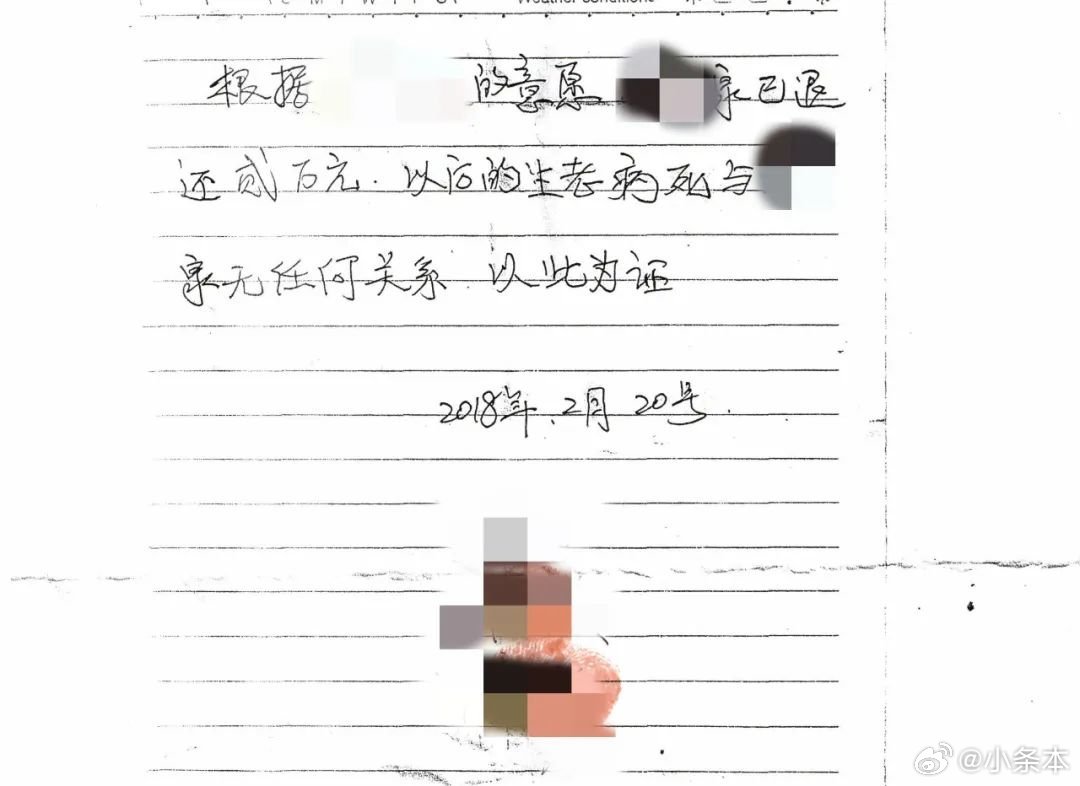 Weather conditions
根据 的意愿 家已退
还贰万元.以后的生老病死与
家无任何关系.以此为证
2018年.2月20号.
@小条本